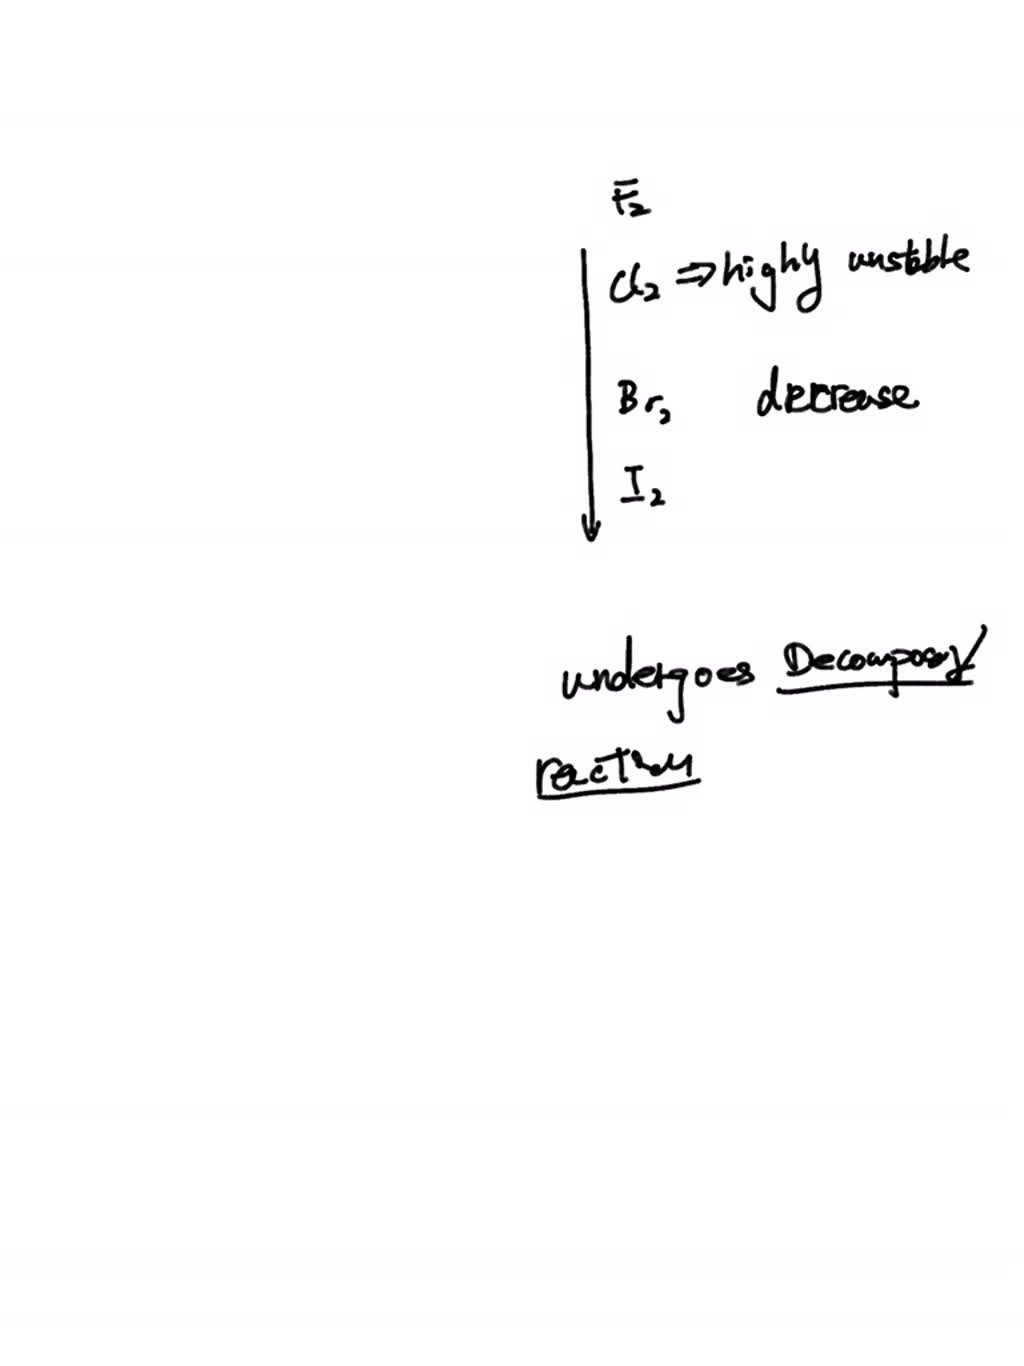 F₂
Cl₂ ⇒ highy unstable
Br₂ decrease
I₂
undergoes Decomposy
reaction